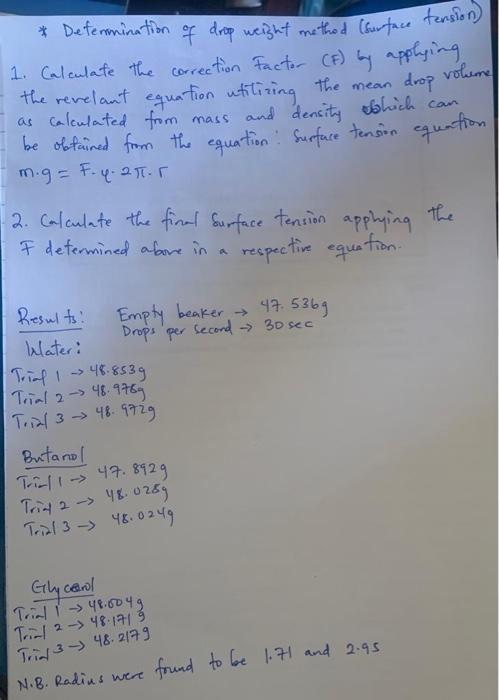 * Determination of drop weight method (surface tension)
1. Calculate the correction Factor (F) by applying
the revelant equation utilizing the mean drop volume
as calculated from mass and density which can
be obtained from the equation: Surface tension equation
m.g = F.φ.2π.r
2. Calculate the final Surface tension applying the
F determined above in a respective equation.
Results: Empty beaker → 47.536g
Drops per second → 30 sec
Water:
Trial 1 → 48.853g
Trial 2 → 48.976g
Trial 3 → 48.972g
Butanol
Trial 1 → 47.892g
Trial 2 → 48.028g
Trial 3 → 48.024g
Glycerol
Trial 1 → 48.004g
Trial 2 → 48.171g
Trial 3 → 48.217g
N.B. Radius were found to be 1.71 and 2.95